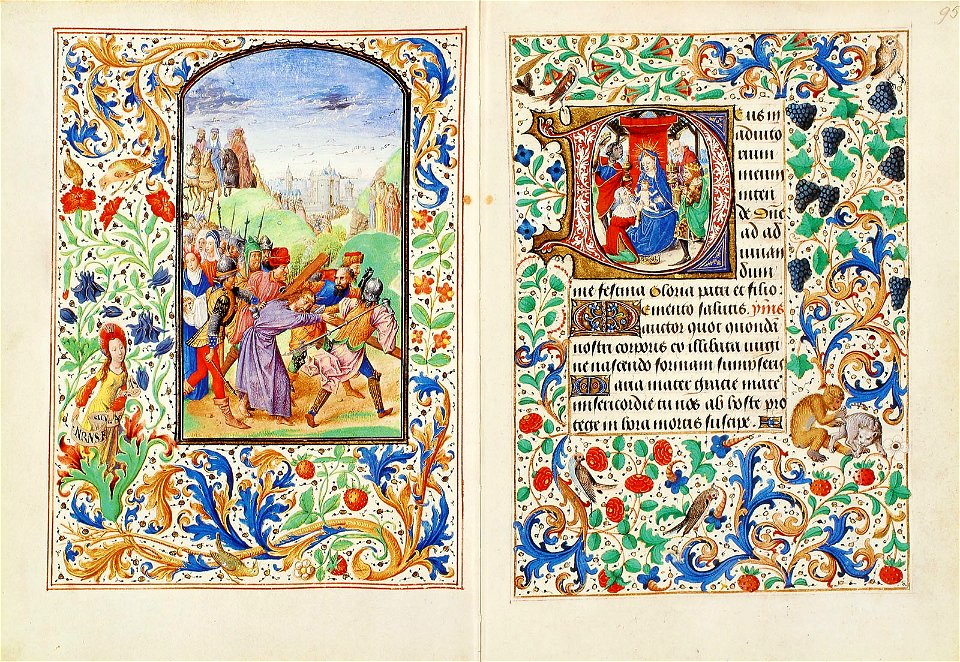 95
Deus in
adiuto
rium
meum
inten
de Dne
ad ad
iuuan
dum
me festina Gloria patri et filio:
Memento salutis ymns
auctor quot quondā
nostri corporis ex illibata virgi
ne nascendo formam sumpseris
Maria mater gracie mater
misericordie tu nos ab hoste pro
tege in hora mortis suscipe.